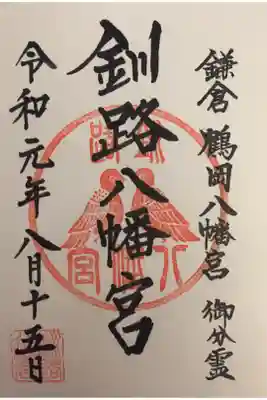 鎌倉 鶴岡八幡宮 御分霊
釧路八幡宮
令和元年八月十五日